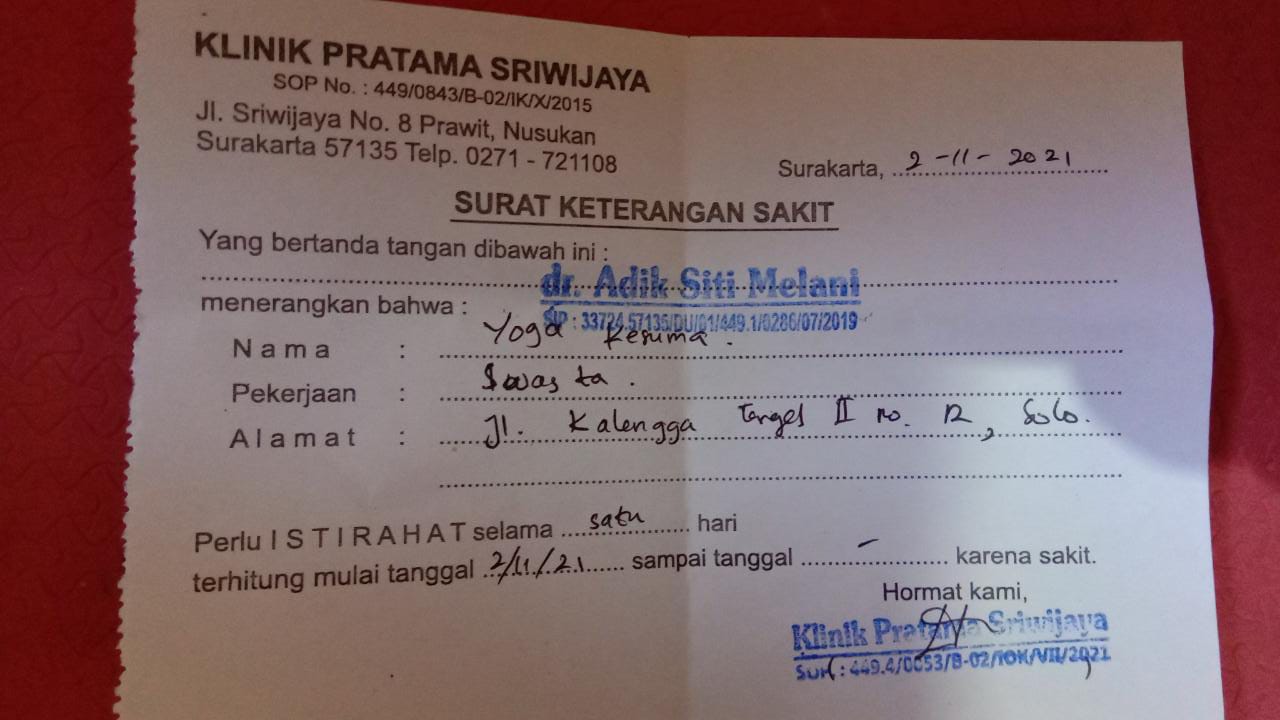 KLINIK PRATAMA SRIWIJAYA
SOP No. : 449/0843/B-02/IK/X/2015
Jl. Sriwijaya No. 8 Prawit, Nusukan
Surakarta 57135 Telp. 0271 - 721108
Surakarta, 2-11-2021
SURAT KETERANGAN SAKIT
Yang bertanda tangan dibawah ini :
dr. Adik Siti Melani
SIP : 33724.57135/DU/01/449.1/0286/07/2019
menerangkan bahwa :
Nama : Yoga Kesuma.
Pekerjaan : Swasta.
Alamat : Jl. Kalengga II no. 12, Solo.
Perlu ISTIRAHAT selama satu hari
terhitung mulai tanggal 2/11/21 sampai tanggal - karena sakit.
Hormat kami,
Klinik Pratama Sriwijaya
: 449.4/0053/B-02/IOK/VII/2021